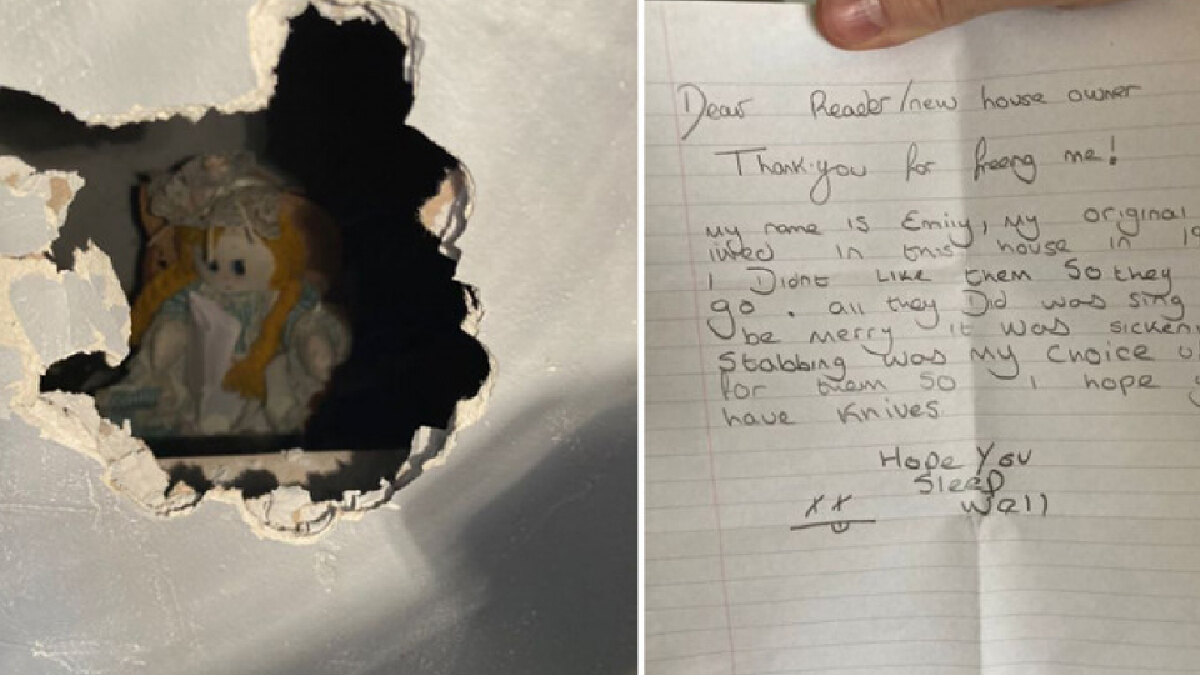 Dear Reader/new house owner
Thank-you for freeng me!
my name is Emily, my original
lived in this house in 19
I Didnt Like them So they
go. all they Did was sing
be merry it was sicken
Stabbing was my choice o
for them so I hope y
have knives
Hope You
Sleep
Well
xx